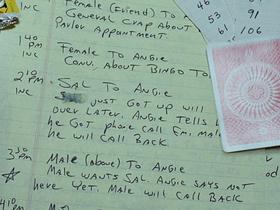 INC
Female (Friend) To A
General Crap About
Parlor Appointment.
53
91
61
106
1:40
PM
INC
Female To Angie
Conv. About Bingo To
2:10
PM
INC
Sal To Angie
Just Got up will
over Later. Angie Tells
he Got phone call Em. male
he will call Back
3:30
PM
Male (above) To Angie
Male wants Sal. Angie says not
here yet. Male will call Back
4:10
PM